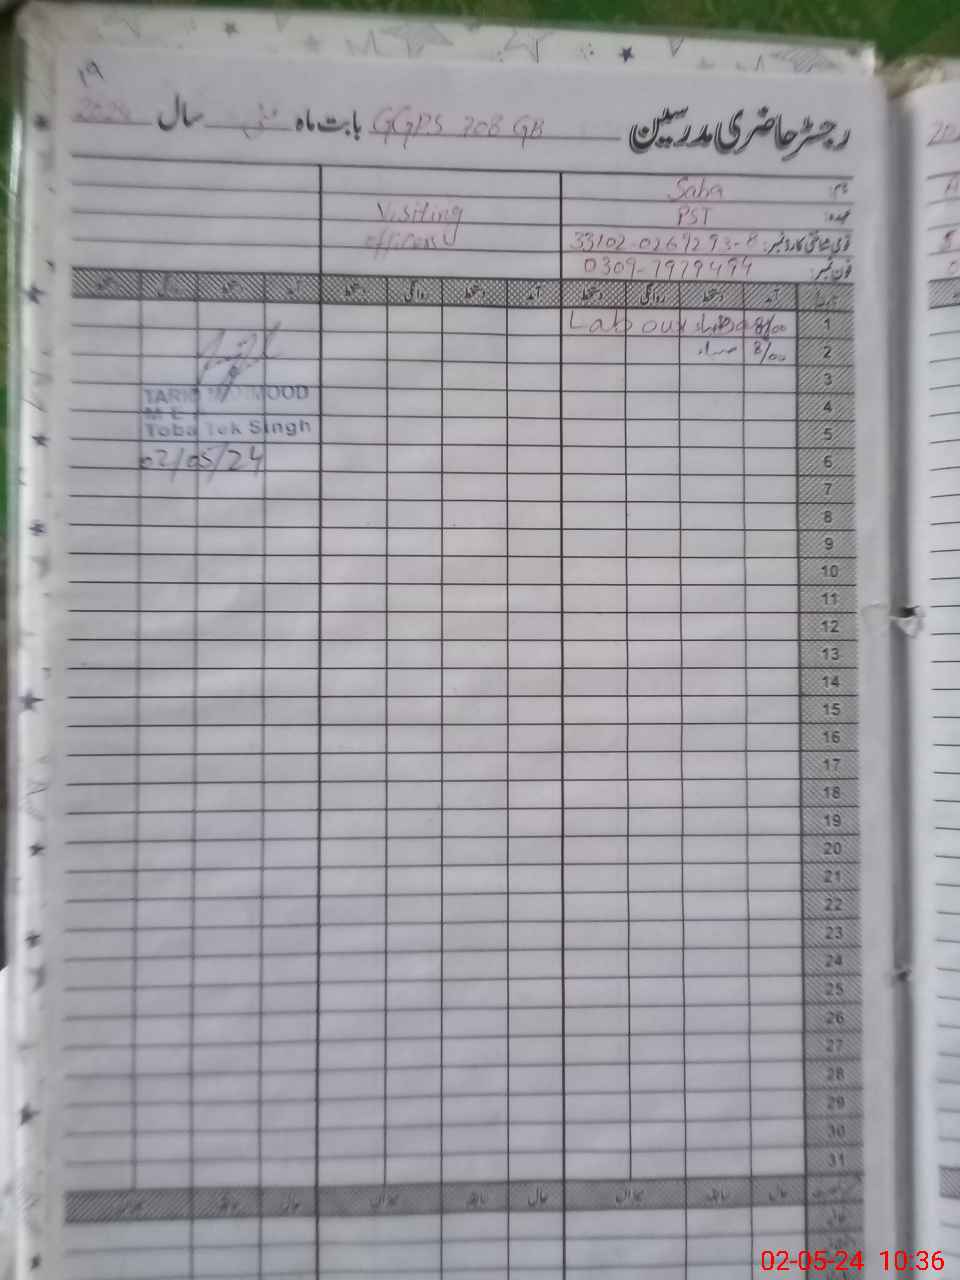 19
رجسٹر حاضری مدرسین GGPS 708 GB بابت ماہ مئی سال 2024
نام: Saba
عہدہ: PST
Visiting
قومی شناختی کارڈ نمبر: 33102-0269293-8
officers
فون نمبر: 0309-7979494
آمد دستخط روانگی دستخط آمد دستخط روانگی دستخط آمد دستخط روانگی دستخط
1 8/00 Labour
2 8/00 صباء
3
TARIQ MAHMOOD
4
M E A
Toba Tek Singh
5
02/05/24
6
7
8
9
10
11
12
13
14
15
16
17
18
19
20
21
22
23
24
25
26
27
28
29
30
31
حال سابقہ میزان حال سابقہ میزان حال سابقہ میزان
02-05-24 10:36